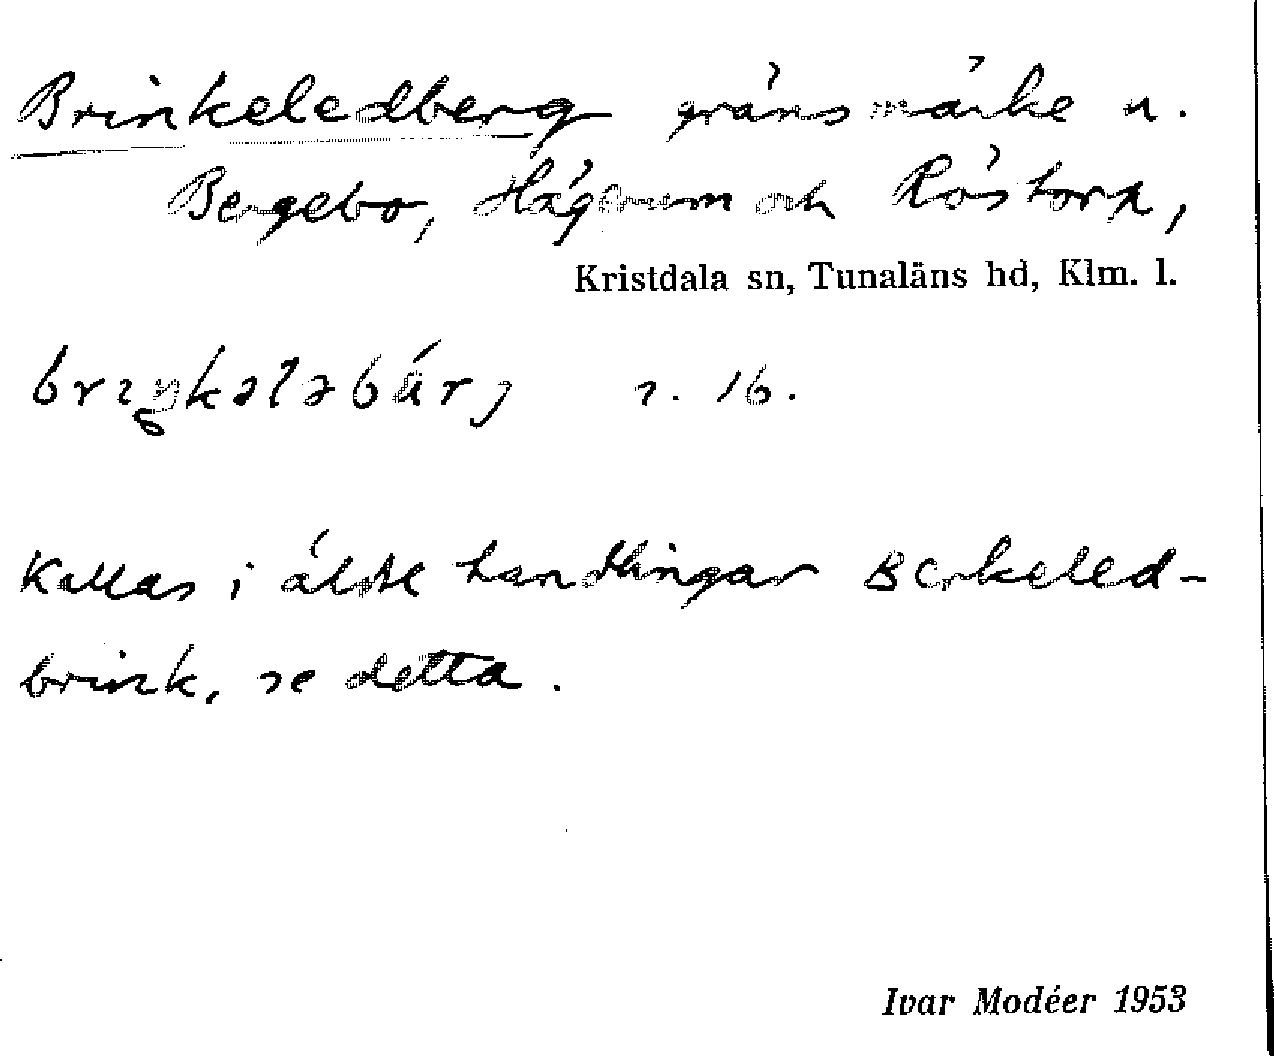 Brinkeledberg gränsmärke u.
Bergebo, Höckhult och Röstorp,
Kristdala sn, Tunaläns hd, Klm. l.
brıŋkələbärj s. 16.
Kallas i äldre handlingar Berkeled-
brink, se detta.
Ivar Modéer 1953